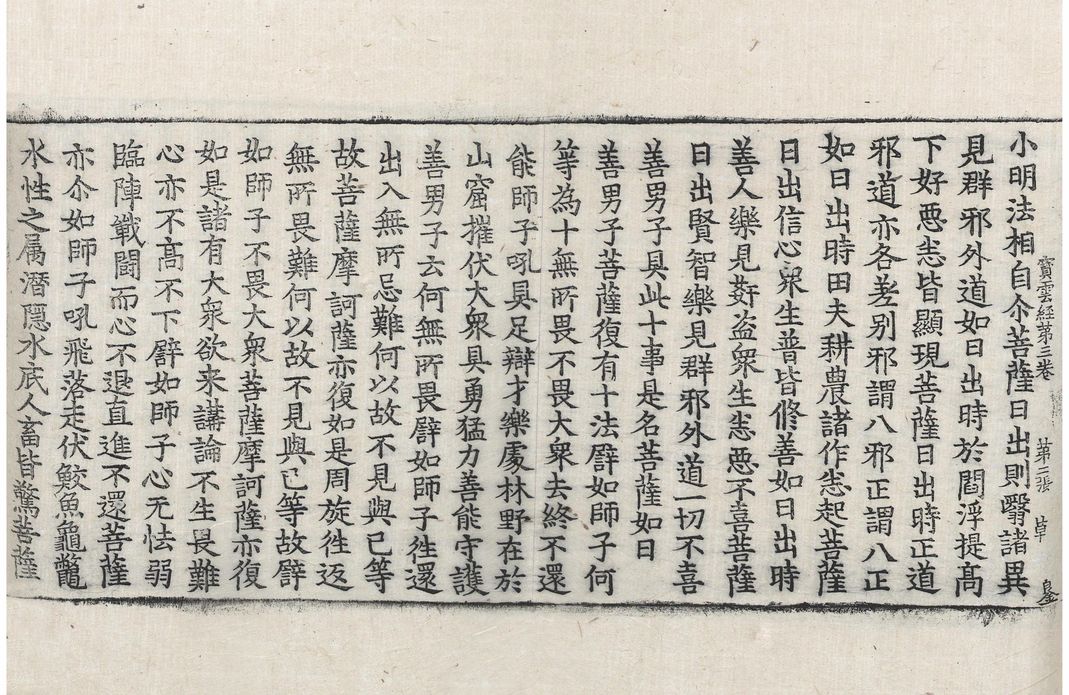 寶雲經第三卷 第二張 皇
小明法相自尒菩薩日出則翳諸異
見群邪外道如日出時於閻浮提髙
下好惡悉皆顯現菩薩日出時正道
邪道亦各差别邪謂八邪正謂八正
如日出時田夫耕農諸作悉起菩薩
日出信心衆生普皆修善如日出時
善人樂見姧盗衆生悉惡不喜菩薩
日出賢智樂見群邪外道一切不喜
善男子具此十事是名菩薩如日
善男子菩薩復有十法譬如師子何
等為十無所畏不畏大衆去終不還
能師子吼具足辯才樂處林野在於
山窟摧伏大衆具勇猛力善能守護
善男子云何無所畏譬如師子徃還
出入無所忌難何以故不見與己等
故菩薩摩訶薩亦復如是周旋徃返
無所畏難何以故不見與己等故譬
如師子不畏大衆菩薩摩訶薩亦復
如是諸有大衆欲来講論不生畏難
心亦不髙不下譬如師子心无怯弱
臨陣戰鬪而心不退直進不還菩薩
亦尒如師子吼飛落走伏鮫魚龜鼈
水性之属潛隠水底人畜皆驚菩薩